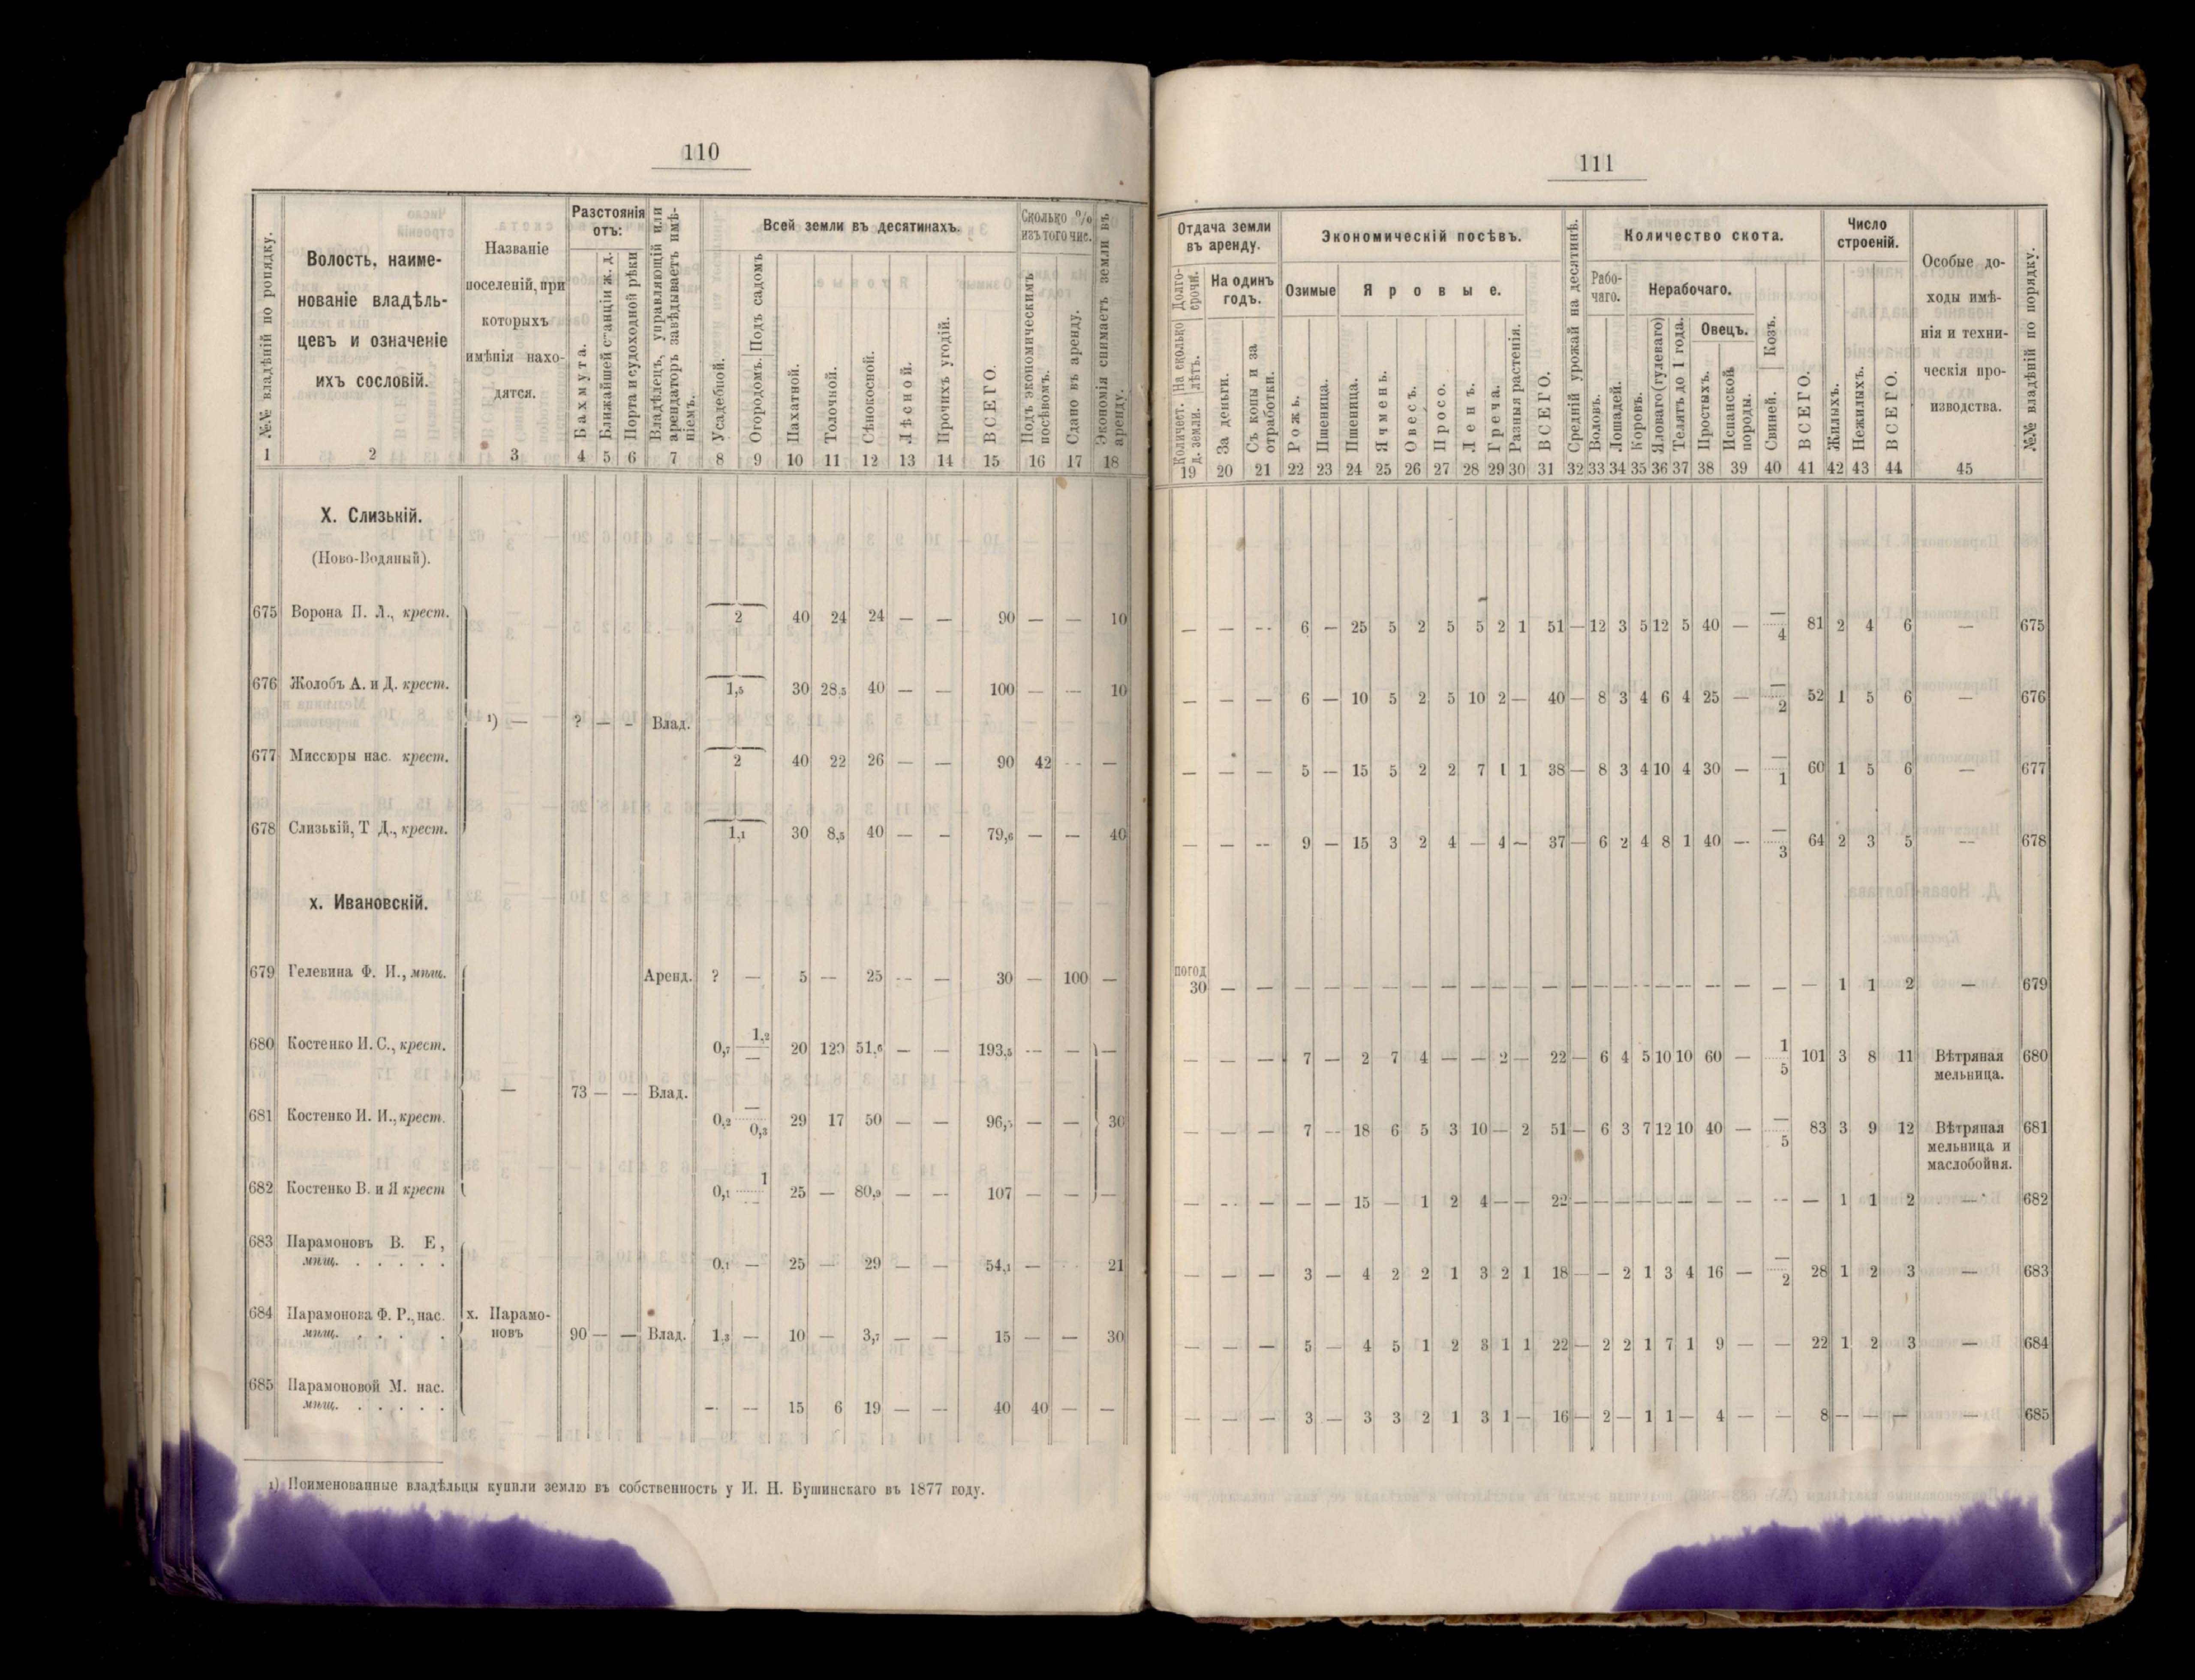 110
№№ владѣній по порядку.
Волость, наиме-
нованіе владѣль-
цевъ и означеніе
ихъ сословій.
Названіе
поселеній, при
которыхъ
имѣнія нахо-
дятся.
Разстоянія
отъ:
Бахмута.
Ближайшей станціи ж. д.
Порта и судоходной рѣки
Владѣлецъ, управляющій или
арендаторъ завѣдываетъ имѣ-
ніемъ.
Всей земли въ десятинахъ.
Усадебной.
Огородомъ. Подъ садомъ
Пахатной.
Толочной.
Сѣнокосной.
Лѣсной.
Прочихъ угодій.
ВСЕГО.
Сколько %
изъ того чис.
Подъ экономическимъ
посѣвомъ.
Сдано въ аренду.
Экономія снимаетъ земли въ
аренду.
1 2 3 4 5 6 7 8 9 10 11 12 13 14 15 16 17 18
Х. Слизькій.
(Ново-Водяный).
675 Ворона П. Л., крест. 2 40 24 24 — — 90 — — 10
676 Жолобъ А. и Д. крест. 1,5 30 28,5 40 — — 100 — — 10
¹) — ? — - Влад.
677 Миссюры нас. крест. 2 40 22 26 — — 90 42 - - —
678 Слизькій, Т Д., крест. 1,1 30 8,5 40 — - 79,6 — — 40
х. Ивановскій.
679 Гелевина Ф. И., мѣщ. Аренд. ? — 5 — 25 - - — 30 — 100 —
680 Костенко И. С., крест. 0,7 1,2 — 20 120 51,6 — — 193,5 - - — —
— 73 — — Влад.
681 Костенко И. И., крест. 0,2 — 0,3 29 17 50 — — 96,5 — — 30
682 Костенко В. и Я крест 0,1 1 - - 25 — 80,9 — — 107 — — —
683 Парамоновъ В. Е,
мѣщ. . . . . . 0,1 — 25 — 29 — — 54,1 — 21
684 Парамонова Ф. Р., нас. х. Парамо-
мѣщ. . . . . новъ 90 — — Влад. 1,3 — 10 — 3,7 — — 15 — — 30
685 Парамоновой М. нас.
мѣщ. . . . . . — — 15 6 19 — — 40 40 — —
1) Поименованные владѣльцы купили землю въ собственность у И. Н. Бушинскаго въ 1877 году.
111
Отдача земли
въ аренду.
Долго-
срочн.
Количест. На сколько
д. земли. лѣтъ.
На одинъ
годъ.
За деньги.
Съ копы и за
отработки.
Экономическій посѣвъ.
Озимые
Яровые.
Рожь.
Пшеница.
Пшеница.
Ячмень.
Овесъ.
Просо.
Ленъ.
Греча.
Разныя растенія.
ВСЕГО.
Средній урожай на десятинѣ.
Количество скота.
Рабо-
чаго.
Нерабочаго.
Воловъ.
Лошадей.
Коровъ.
Яловаго (гулеваго)
Телятъ до 1 года.
Овецъ.
Простыхъ.
Испанской
породы.
Свиней. Козъ.
ВСЕГО.
Число
строеній.
Жилыхъ.
Нежилыхъ.
ВСЕГО.
Особые до-
ходы имѣ-
нія и техни-
ческія про-
изводства.
№№ владѣній по порядку.
19 20 21 22 23 24 25 26 27 28 29 30 31 32 33 34 35 36 37 38 39 40 41 42 43 44 45
— — - - 6 — 25 5 2 5 5 2 1 51 — 12 3 5 12 5 40 — — 4 81 2 4 6 — 675
— — — 6 — 10 5 2 5 10 2 — 40 — 8 3 4 6 4 25 — — 2 52 1 5 6 — 676
— — — 5 — 15 5 2 2 7 1 1 38 — 8 3 4 10 4 30 — — 1 60 1 5 6 — 677
— — - - 9 — 15 3 2 4 — 4 — 37 — 6 2 4 8 1 40 — — 3 64 2 3 5 — 678
погод
30 — — — — — — — — — — — — — — — — — — — — — — 1 1 2 — 679
— — — 7 — 2 7 4 — — 2 — 22 — 6 4 5 10 10 60 — 1 5 101 3 8 11 Вѣтряная 680
мельница.
— — — 7 — 18 6 5 3 10 — 2 51 — 6 3 7 12 10 40 — — 5 83 3 9 12 Вѣтряная 681
мельница и
маслобойня.
— - - — — — 15 — 1 2 4 — — 22 — — — — — — — — - - — 1 1 2 — 682
— — — 3 — 4 2 2 1 3 2 1 18 — — 2 1 3 4 16 — — 2 28 1 2 3 — 683
— — — 5 — 4 5 1 2 3 1 1 22 — 2 2 1 7 1 9 — — 22 1 2 3 — 684
— — — 3 — 3 3 2 1 3 1 — 16 — 2 — 1 1 — 4 — — 8 — — — — 685